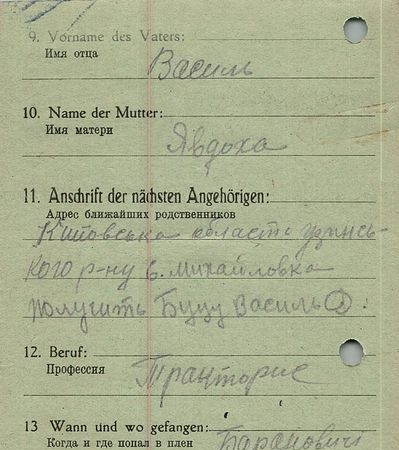 9. Vorname des Vaters:
Имя отца
Василь
10. Name der Mutter:
Имя матери
Явдоха
11. Anschrift der nächsten Angehörigen:
Адрес ближайших родственников
области
кого р-ну с. Михайловка
получить Буцу Василь
12. Beruf:
Профессия
Тракторис
13 Wann und wo gefangen:
Когда и где попал в плен
Барановичі